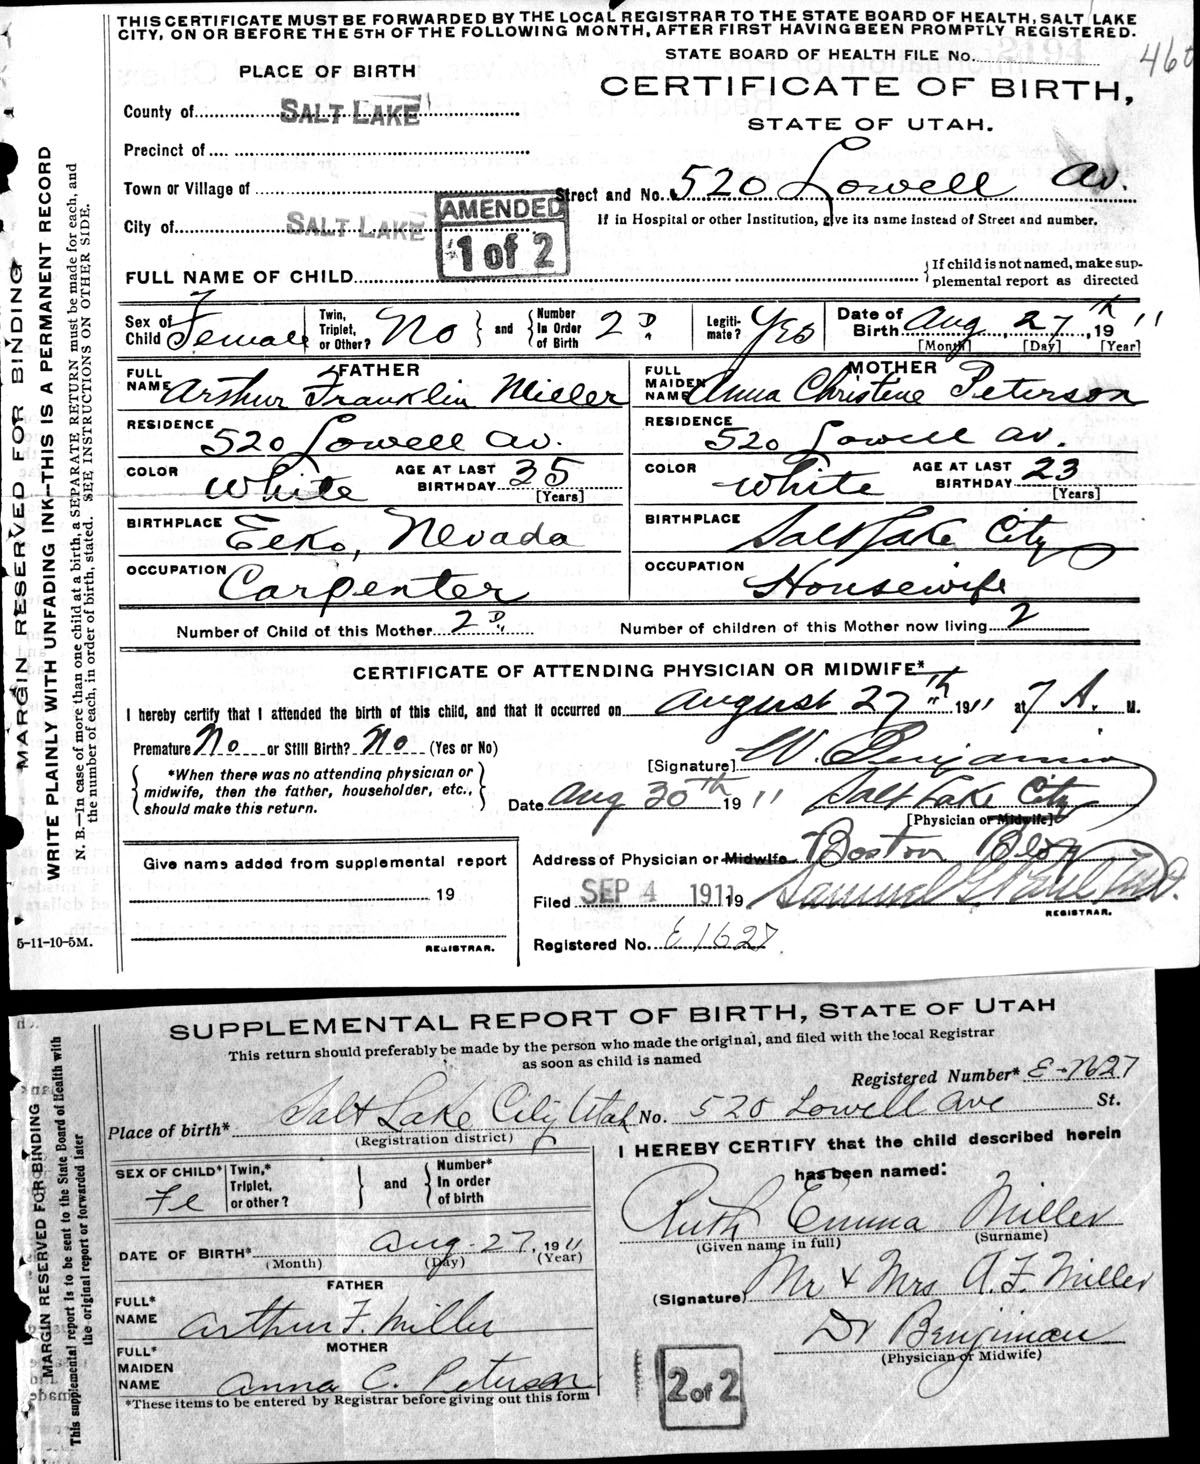 THIS CERTIFICATE MUST BE FORWARDED BY THE LOCAL REGISTRAR TO THE STATE BOARD OF HEALTH, SALT LAKE
CITY, ON OR BEFORE THE 5TH OF THE FOLLOWING MONTH, AFTER FIRST HAVING BEEN PROMPTLY REGISTERED.
STATE BOARD OF HEALTH FILE No.
460
PLACE OF BIRTH
CERTIFICATE OF BIRTH,
STATE OF UTAH.
County of SALT LAKE
Precinct of
Town or Village of
Street and No. 520 Lowell Av.
If in Hospital or other Institution, give its name instead of Street and number.
City of SALT LAKE
AMENDED
1 of 2
FULL NAME OF CHILD
If child is not named, make sup-
plemental report as directed
Sex of Child Female
Twin, Triplet, or Other? No and Number In Order of Birth 2D.
Legiti-mate? Yes
Date of Birth Aug 27th, 1911
[Month] [Day] [Year]
FATHER
FULL NAME Arthur Franklin Miller
MOTHER
FULL MAIDEN NAME Anna Christene Peterson
RESIDENCE 520 Lowell Av.
RESIDENCE 520 Lowell Av.
COLOR White AGE AT LAST BIRTHDAY 35 [Years]
COLOR White AGE AT LAST BIRTHDAY 23 [Years]
BIRTHPLACE Elko, Nevada
BIRTHPLACE Salt Lake City
OCCUPATION Carpenter
OCCUPATION Housewife
Number of Child of this Mother 2D. Number of children of this Mother now living 2
CERTIFICATE OF ATTENDING PHYSICIAN OR MIDWIFE*
I hereby certify that I attended the birth of this child, and that it occurred on August 27th 1911 at 7 A. M.
Premature No or Still Birth? No (Yes or No)
[Signature] W. Benjamin
*When there was no attending physician or
midwife, then the father, householder, etc.,
should make this return.
Date Aug 30th 1911 Salt Lake City
[Physician or Midwife]
Give name added from supplemental report
19
REGISTRAR.
Address of Physician or Midwife Boston Blog
Filed SEP 4 1911 19 Samuel G. Paul M.D.
REGISTRAR.
Registered No. E1627
5-11-10-5M.
MARGIN RESERVED FOR BINDING
WRITE PLAINLY WITH UNFADING INK—THIS IS A PERMANENT RECORD
N. B.—In case of more than one child at a birth, a SEPARATE RETURN must be made for each, and
the number of each, in order of birth, stated. SEE INSTRUCTIONS ON OTHER SIDE.
SUPPLEMENTAL REPORT OF BIRTH, STATE OF UTAH
This return should preferably be made by the person who made the original, and filed with the local Registrar
as soon as child is named
Registered Number* E-1627
Place of birth* Salt Lake City Utah No. 520 Lowell Ave St.
(Registration district)
SEX OF CHILD* Fe
Twin,* Triplet, or other? and Number* In order of birth
I HEREBY CERTIFY that the child described herein
has been named:
Ruth Emma Miller
(Given name in full) (Surname)
DATE OF BIRTH* Aug. 27, 1911
(Month) (Day) (Year)
FATHER
FULL* NAME Arthur F. Miller
(Signature) Mr & Mrs A. F. Miller
Dr Benjiman
(Physician or Midwife)
MOTHER
FULL* MAIDEN NAME Anna C. Peterson
*These items to be entered by Registrar before giving out this form
2 of 2
MARGIN RESERVED FOR BINDING
This supplemental report is to be sent to the State Board of Health with
the original report or forwarded later